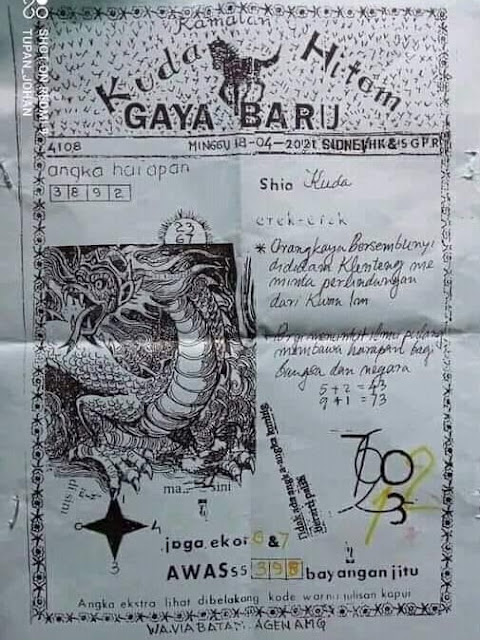 Ramalan
Kuda Hitam
GAYA BARU
4108 MINGGU 18-04-2021 SIDNEY/HK & SGPR
angka harapan
3 8 9 2
Shio Kuda
erek-erek
23
67
* Orang kaya Bersembunyi
didalam Klenteng me
minta perlindungan
dari Kwan Im
Pergi menuntut ilmu pulang
membawa harapan bagi
bangsa dan negara
5 + 2 = 43
9 + 1 = 73
Tidak ada angka-angka kuning
berarti palsu
7 0
3
disini
ma sini
1
4
3
jaga ekor 6 & 7
AWAS 55 3 9 8 bayangan jitu
Angka ekstra lihat dibelakang kode warna tulisan kapur
WA.VIA BATAM. AGEN AMG
SHOT ON REDMI 9
TUPAN_JOHAN